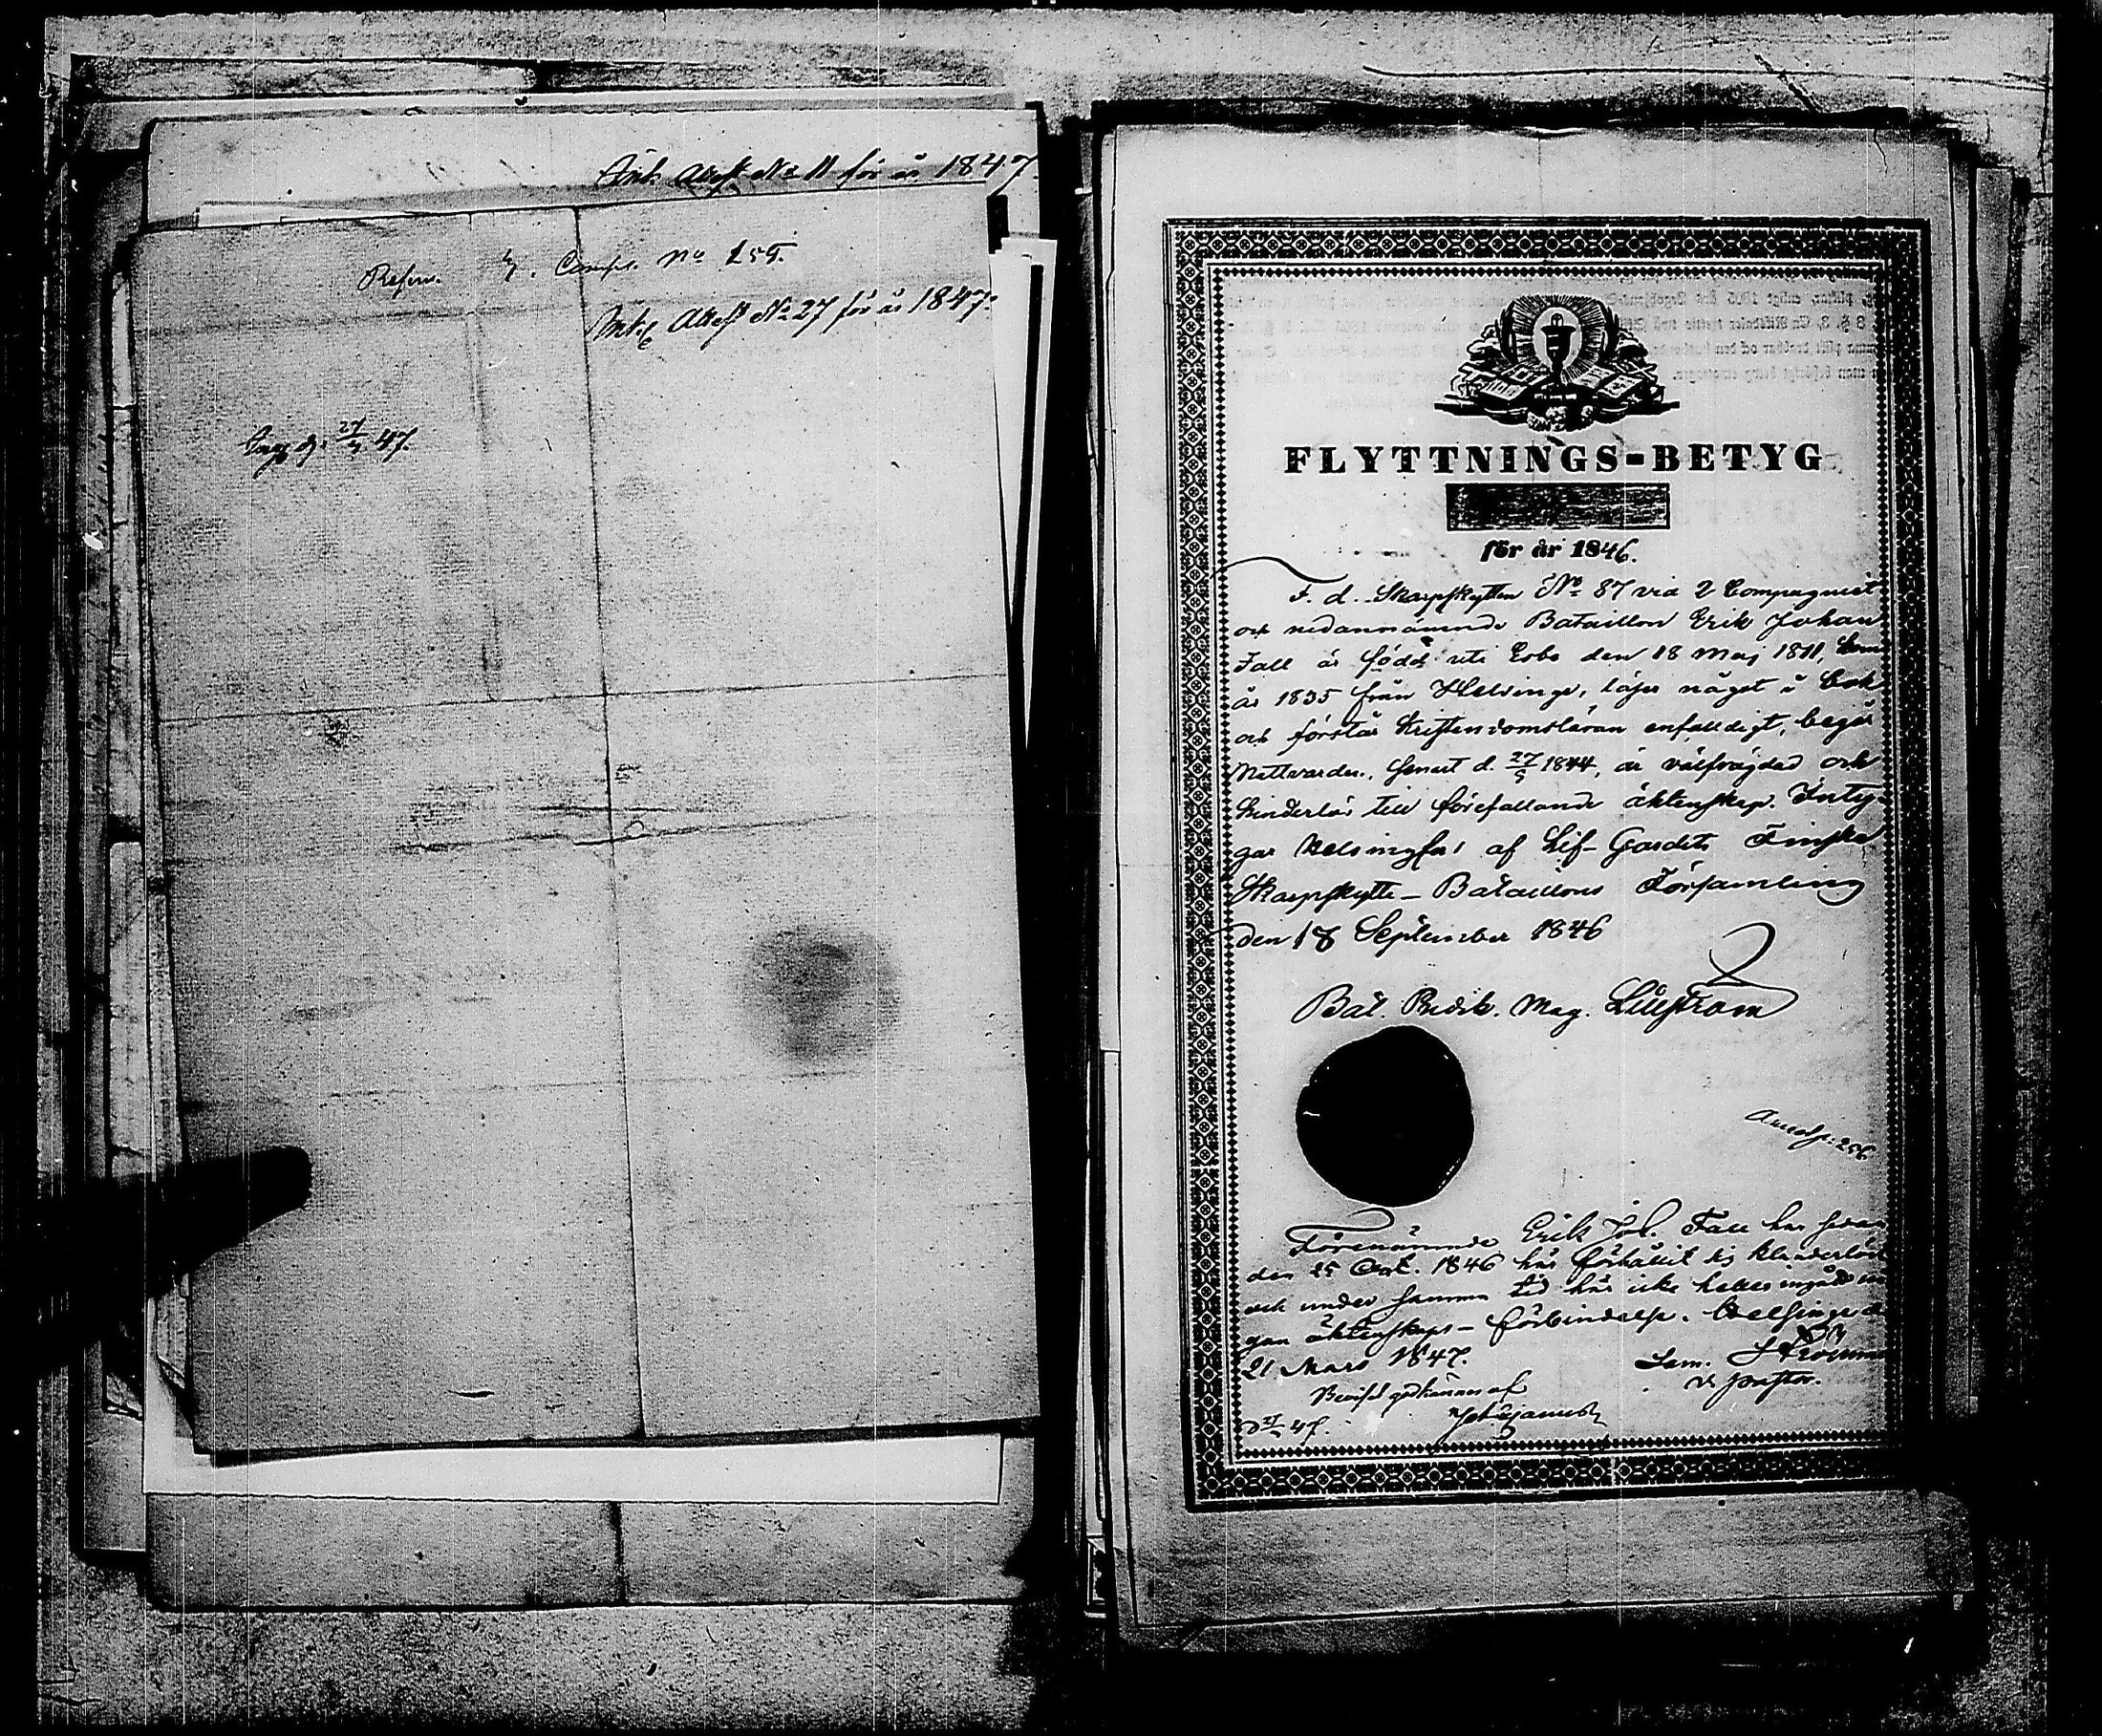 Ink. Attest No 11 för år 1847
Refon. Comp. No 255.
Ink. Attest No 27 för år 1847.
27 47.
FLYTTNINGS-BETYG
för år 1846.
F. d. Skarpskytten No 87 vid 2 Compagniet
och nedannämnde Bataillon Erik Johan
Fall är född uti Esbo den 18 Maj 1811, kom
år 1835 från Helsinge, läser något i bok
och förstår kristendomsläran enfaldigt, begår
Nattvarden, senast d. 27/5 1844, är välfrägdad och
hinderlös till förefallande äktenskap. Inty-
gar Helsingfors af Lif-Gardets Finska
Skarpskytte-Bataillons Församling
den 18 September 1846
Bat. Predik. Mag. Lillström
Förenämnde Erik Joh. Fall har sedan
den 25 Oct. 1846 här förhållit sig klanderlöst
och under samma tid här icke heller ingått nå
gon äktenskaps-förbindelse. Helsinge d.
21 Mars 1847.
Sam. Strömm
v. pastor.
godkännes af
47.